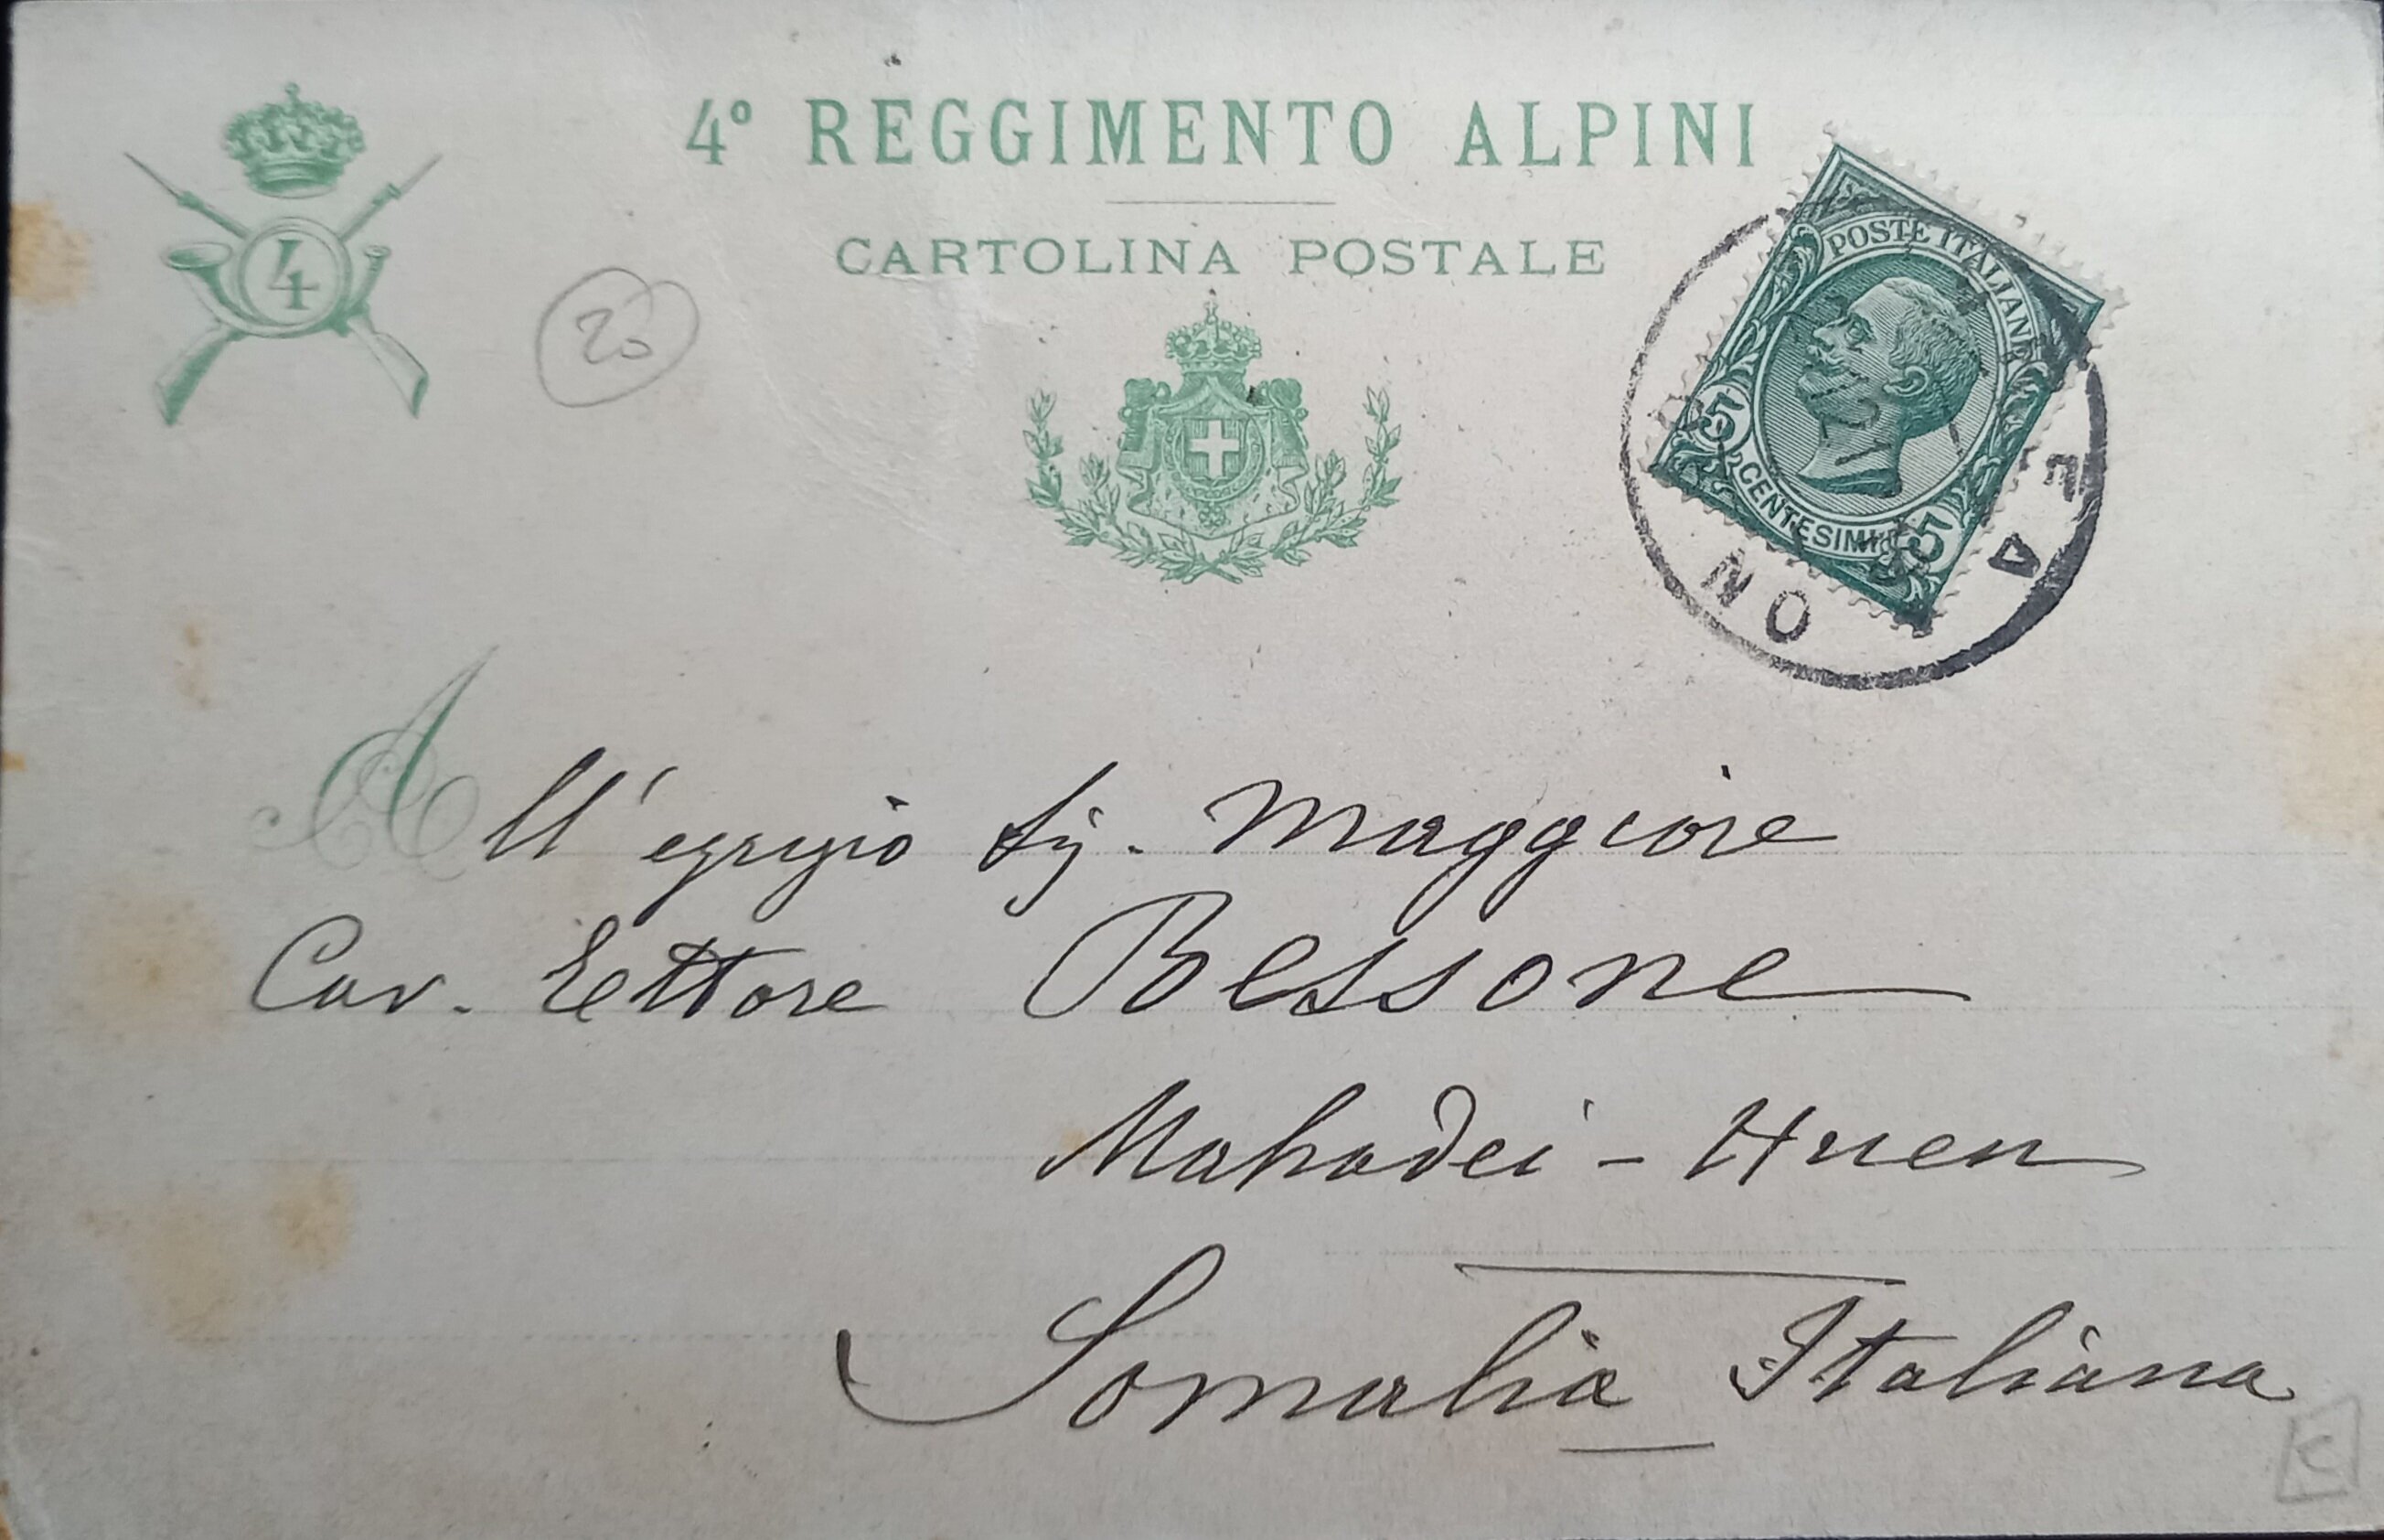 4º REGGIMENTO ALPINI
CARTOLINA POSTALE
4
20
POSTE ITALIANE
5 CENTESIMI 5
All'egregio Sig. Maggiore
Cav. Ettore Bessone
Mahadei - Huen
Somalia Italiana
C